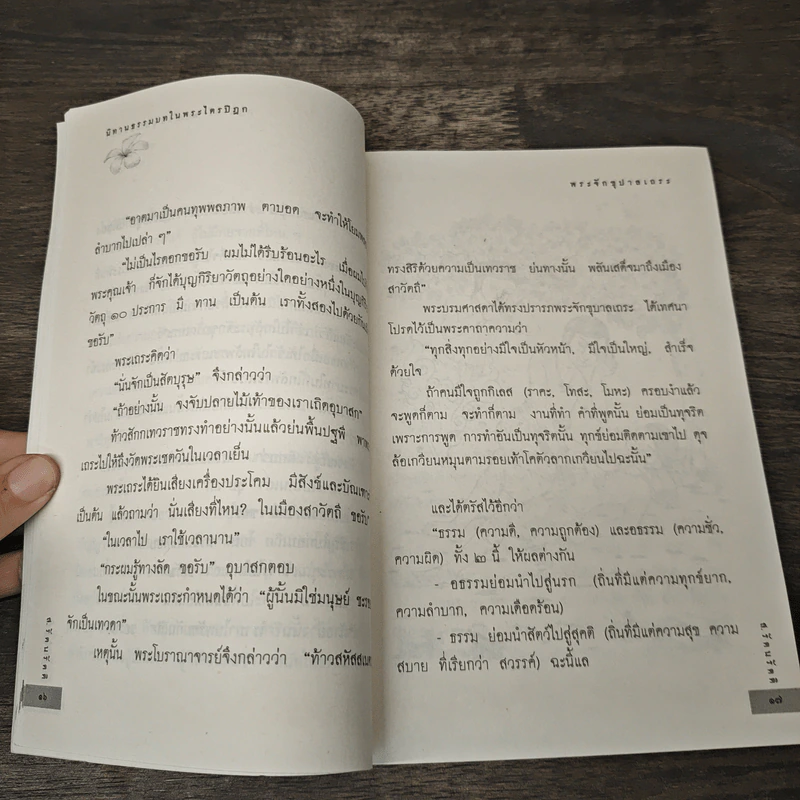 นิทานธรรมบทในพระไตรปิฎก
"อาตมาเป็นคนทุพพลภาพ ตาบอด จะทำให้โยม
ลำบากไปเปล่า ๆ"
"ไม่เป็นไรดอกขอรับ ผมไม่ได้รีบร้อนอะไร เมื่อผม
พระคุณเจ้า ก็จักได้บุญกิริยาวัตถุอย่างใดอย่างหนึ่งในบุญ
วัตถุ ๑๐ ประการ มี ทาน เป็นต้น เราทั้งสองไปด้วยกัน
ขอรับ"
พระเถระคิดว่า
"นั่นจักเป็นสัตบุรุษ" จึงกล่าวว่า
"ถ้าอย่างนั้น จงจับปลายไม้เท้าของเราเถิดอุบาสก"
ท้าวสักกเทวราชทรงทำอย่างนั้นแล้วย่นพื้นปฐพี
เถระไปให้ถึงวัดพระเชตวันในเวลาเย็น
พระเถระได้ยินเสียงเครื่องประโคม มีสังข์และบัณเฑาะ
เป็นต้น แล้วถามว่า นั่นเสียงที่ไหน? ในเมืองสาวัตถี ขอรับ"
"ในเวลาไป เราใช้เวลานาน"
"กระผมรู้ทางลัด ขอรับ" อุบาสกตอบ
ในขณะนั้นพระเถระกำหนดได้ว่า "ผู้นั้นมิใช่มนุษย์
จักเป็นเทวดา"
เหตุนั้น พระโบราณาจารย์จึงกล่าวว่า "ท้าวสหัสส
ส.รัตนรัตติ
๑๖
พระจักขุปาลเถระ
ทรงสิริด้วยความเป็นเทวราช ย่นทางนั้น พลันเสด็จมาถึงเมือง
สาวัตถี"
พระบรมศาสดาได้ทรงปรารภพระจักขุบาลเถระ ได้เทศนา
โปรดไว้เป็นพระคาถาความว่า
"ทุกสิ่งทุกอย่างมีใจเป็นหัวหน้า, มีใจเป็นใหญ่, สำเร็จ
ด้วยใจ
ถ้าคนมีใจถูกกิเลส (ราคะ, โทสะ, โมหะ) ครอบงำแล้ว
จะพูดก็ตาม จะทำก็ตาม งานที่ทำ คำที่พูดนั้น ย่อมเป็นทุจริต
เพราะการพูด การทำอันเป็นทุจริตนั้น ทุกข์ย่อมติดตามเขาไป ดุจ
ล้อเกวียนหมุนตามรอยเท้าโคตัวลากเกวียนไปฉะนั้น"
และได้ตรัสไว้อีกว่า
"ธรรม (ความดี, ความถูกต้อง) และอธรรม (ความชั่ว,
ความผิด) ทั้ง ๒ นี้ ให้ผลต่างกัน
- อธรรมย่อมนำไปสู่นรก (ถิ่นที่มีแต่ความทุกข์ยาก,
ความลำบาก, ความเดือดร้อน)
- ธรรม ย่อมนำสัตว์ไปสู่สุคติ (ถิ่นที่มีแต่ความสุข ความ
สบาย ที่เรียกว่า สวรรค์) ฉะนี้แล
ส.รัตนรัตติ
๑๗